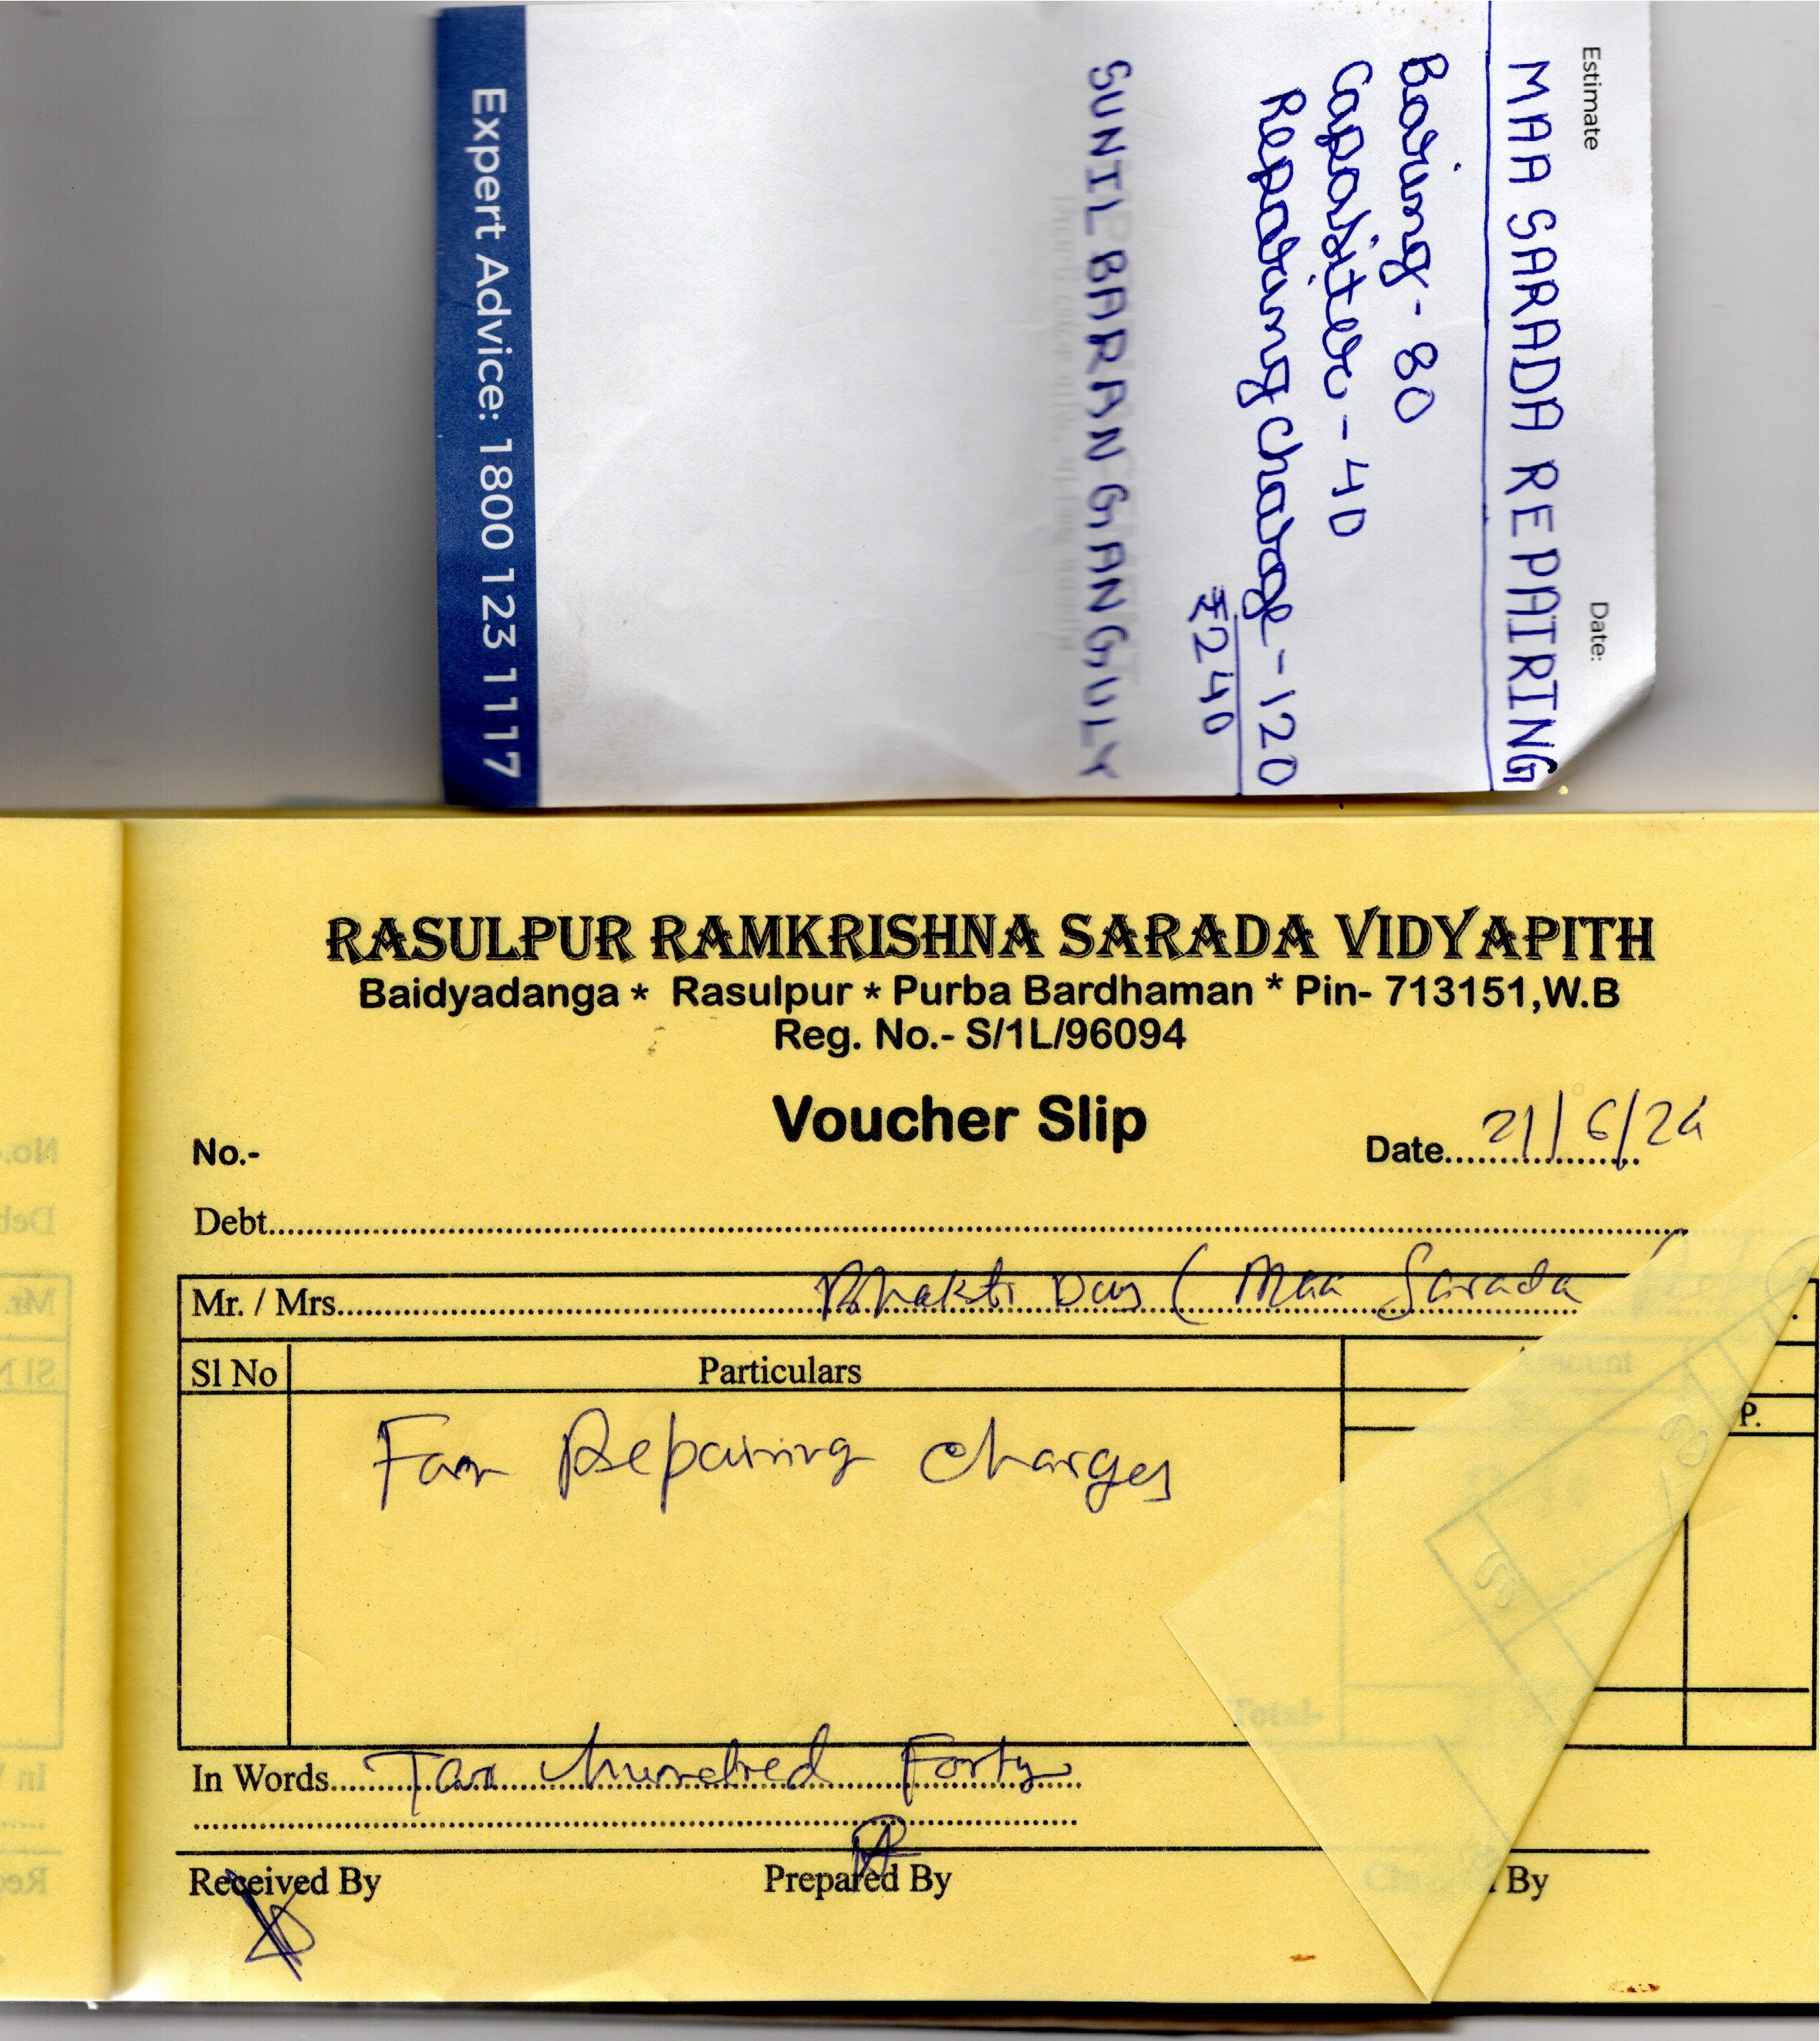 Estimate Date:
MAA SARADA REPAIRING
Baring - 80
Capasiter - 40
Reparing Charge - 120
₹240
SUNIL BARAN GANGULY
Expert Advice: 1800 123 1117
RASULPUR RAMKRISHNA SARADA VIDYAPITH
Baidyadanga * Rasulpur * Purba Bardhaman * Pin- 713151,W.B
Reg. No.- S/1L/96094
Voucher Slip
No.- Date 21/6/24
Debt
Mr. / Mrs. Bhakti Das ( Maa Sarada
Sl No Particulars
P.
Fan Repairing Charges
In Words Two hundred Forty
Received By Prepared By By